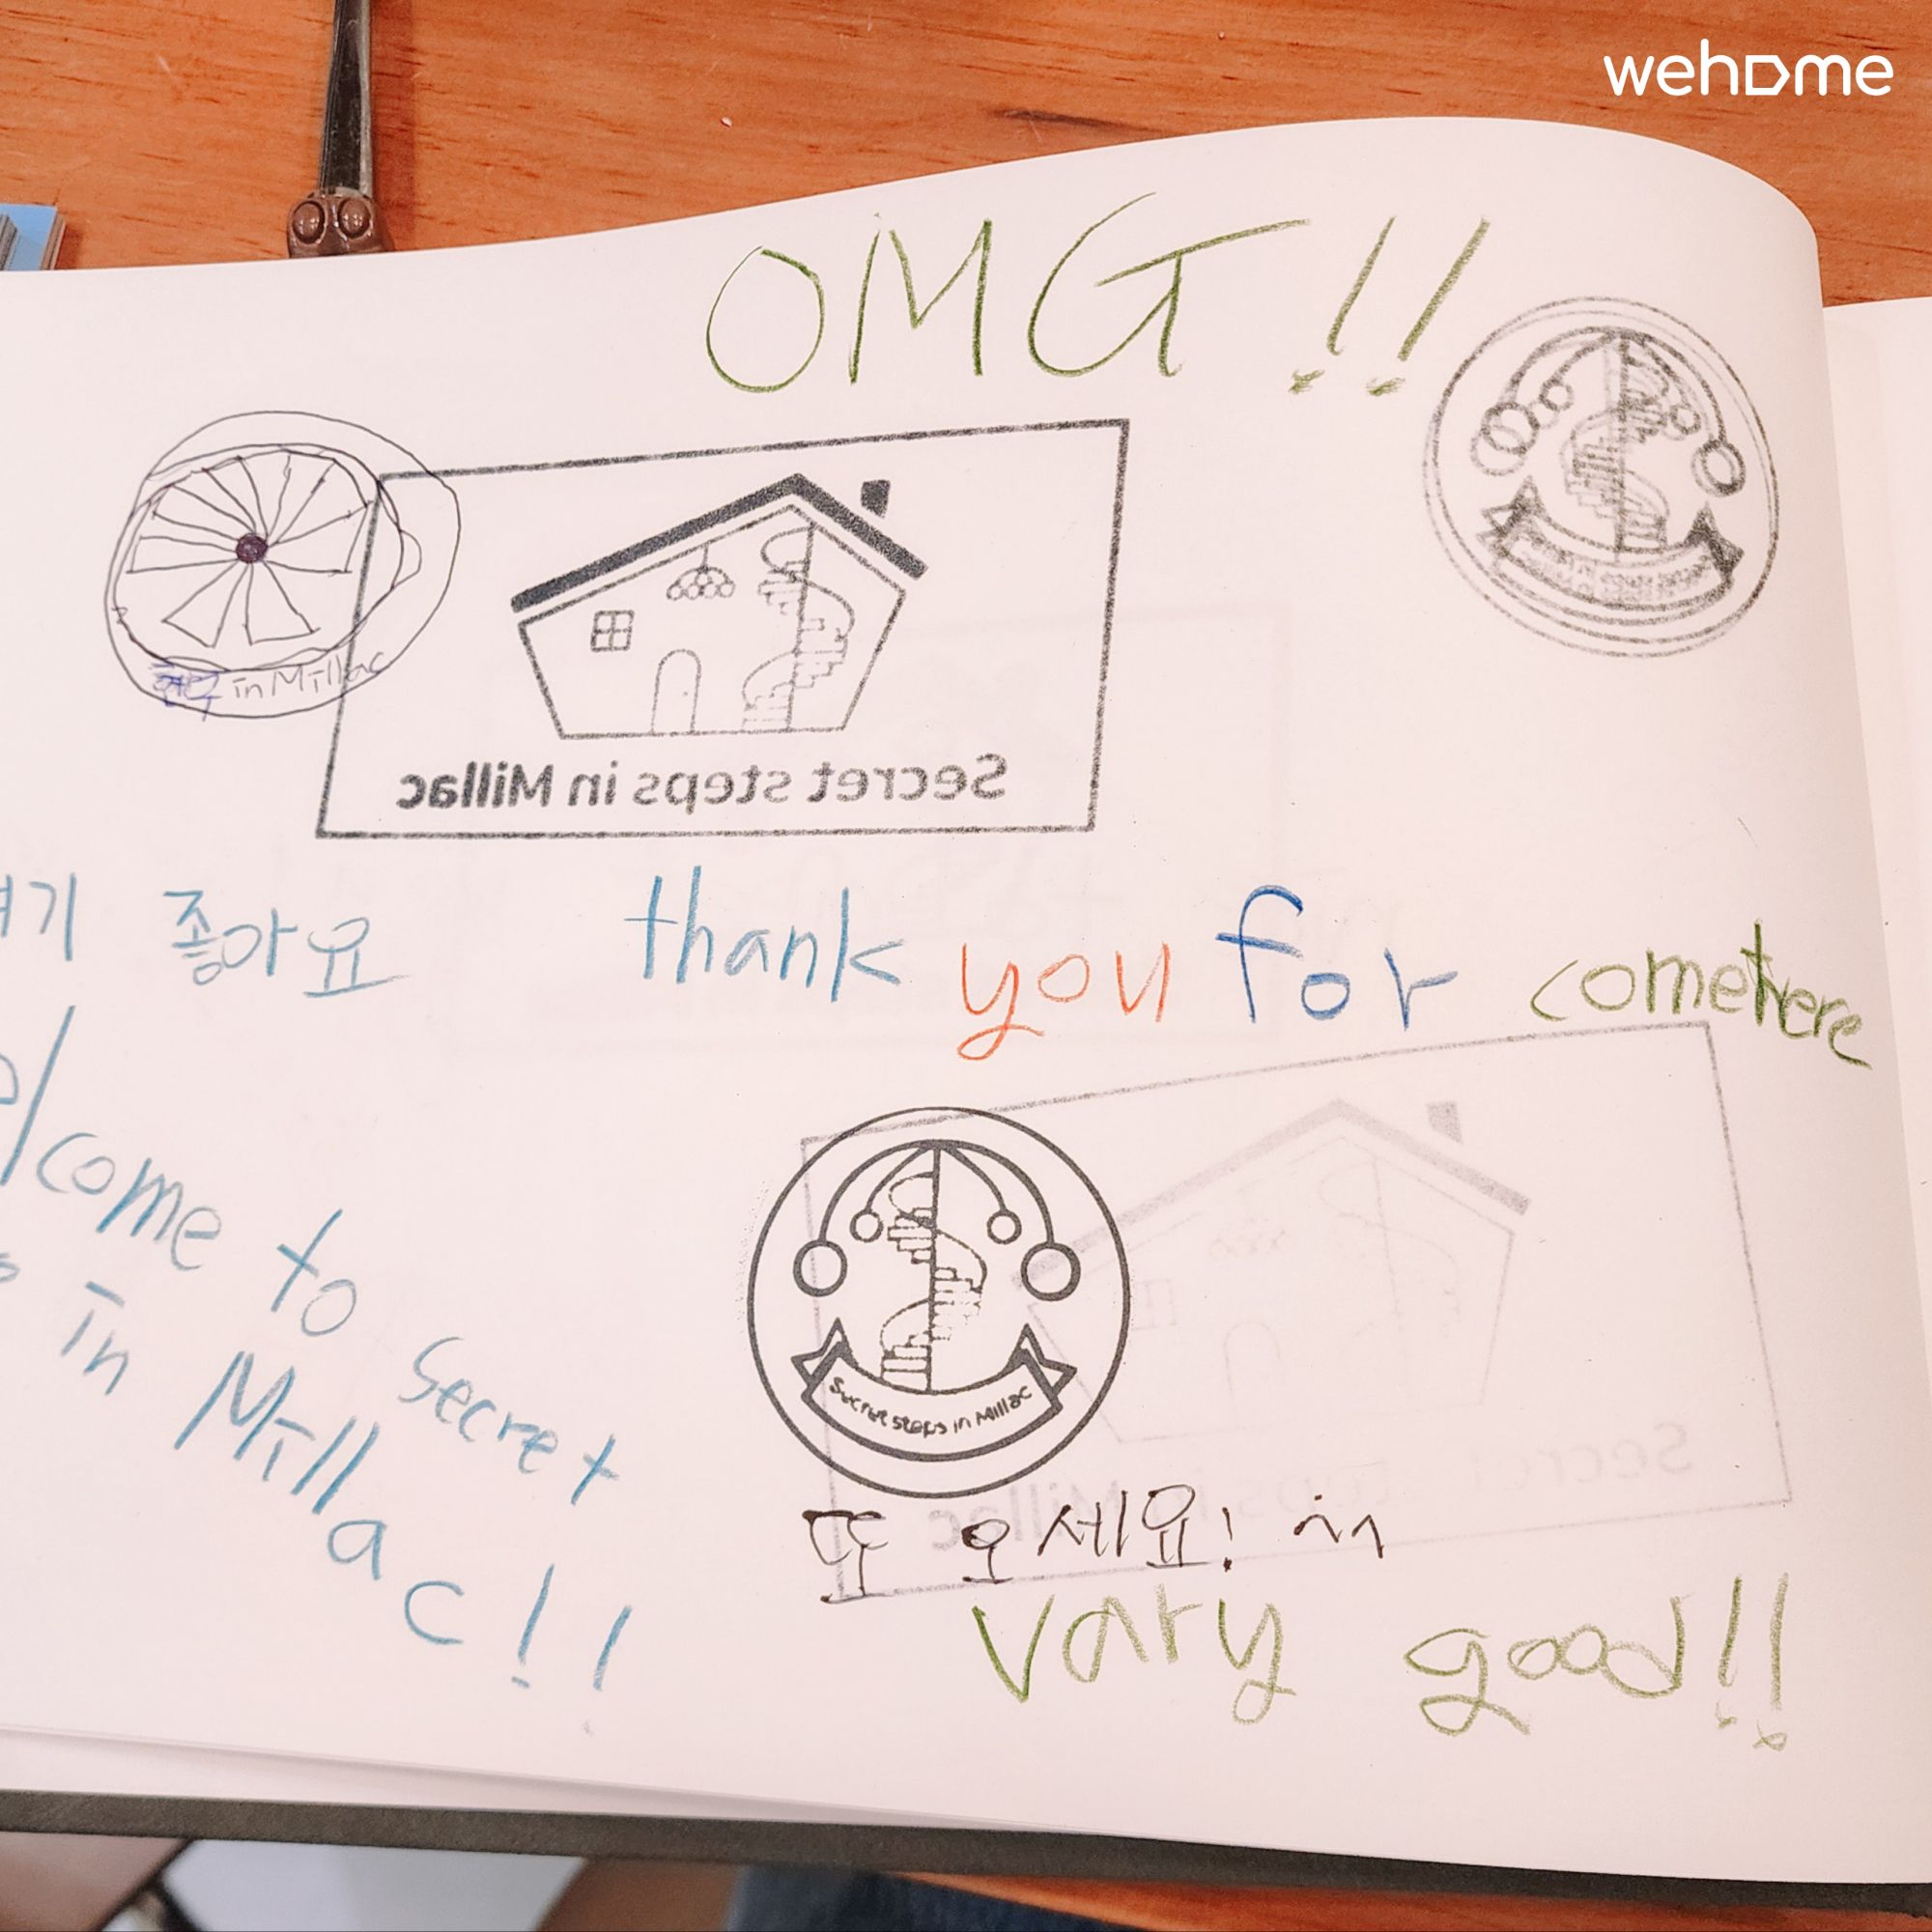 wehome
OMG!!
in Millac
Secret steps in Millac
기 좋아요
thank you for come there
lcome to Secret
in Millac!!
Secret steps in Millac
또 오세요! ^^
Vary good!!